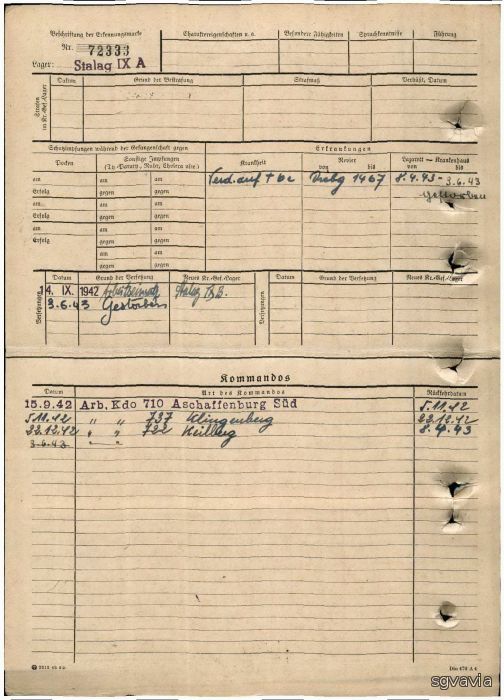 Beschriftung der Erkennungsmarke
Nr. 72333
Lager: Stalag IX A
Charaktereigenschaften u. a.
Besondere Fähigkeiten
Sprachkenntnisse
Führung
Strafen im Kr.-Gef.-Lager
Datum
Grund der Bestrafung
Strafmaß
Verbüßt, Datum
Schutzimpfungen während der Gefangenschaft gegen
Erkrankungen
Pocken
Sonstige Impfungen
(Ty.-Paraty., Ruhr, Cholera usw.)
Krankheit
Revier
von bis
Lazarett — Krankenhaus
von bis
am am am
Verd. auf tbc 1467 8.4.43- 3.6.43
Erfolg gegen gegen
gestorben
am am am
Erfolg gegen gegen
am am am
Erfolg gegen gegen
am am
gegen gegen
Versetzungen
Datum
Grund der Versetzung
Neues Kr.-Gef.-Lager
Versetzungen
Datum
Grund der Versetzung
Neues Kr.-Gef.-Lager
4. IX. 1942 Arbeitseinsatz Stalag IX B.
3.6.43 Gestorben
Kommandos
Datum
Art des Kommandos
Rückkehrdatum
15.9.42 Arb. Kdo 710 Aschaffenburg Süd 5.11.42
5.11.42 " " 737 Klingenberg 22.12.42
22.12.42 " " 722 Keilberg 8.4.43
3.6.43
Din 476 A 4
sgvavia